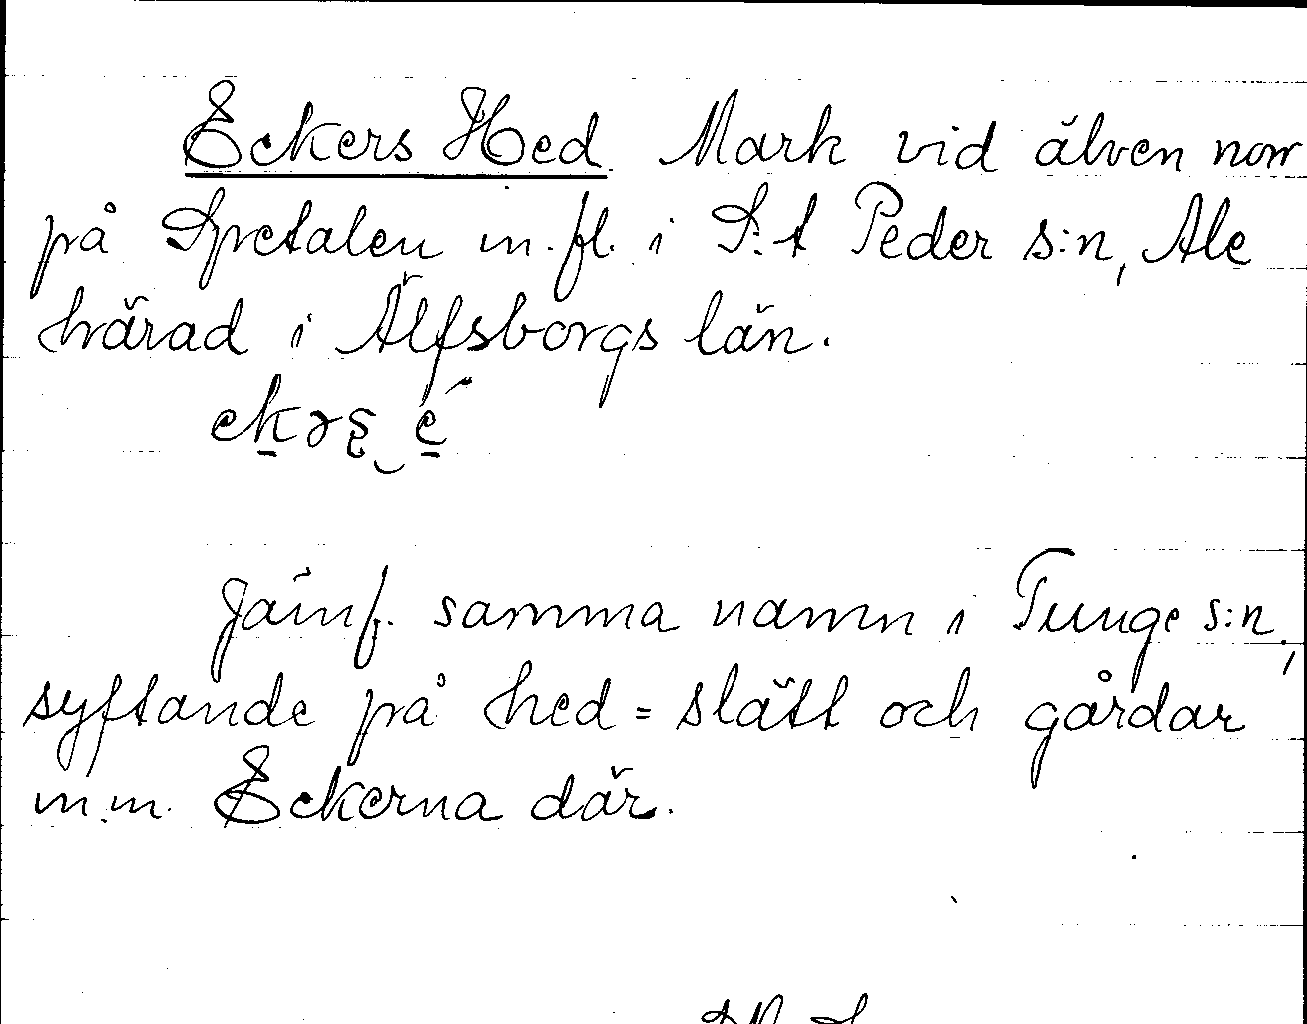 Eckers Hed Mark vid älven norr
på Spetalen m.fl. i S:t Peder s:n, Ale
härad i Älfsborgs län.
Jämf. samma namn i Tunge s:n,
syftande på hed = slätt och gårdar
m.m. Eckerna där.